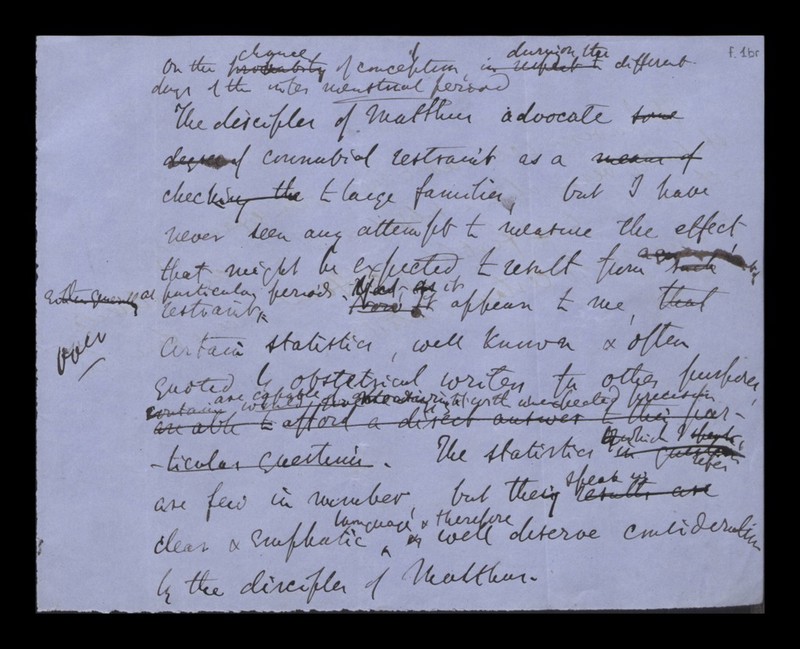 f. 1br
chance during the
On the probability of conception, in respect to different
days of the inter menstrual period
The disciples of Malthus advocate some
degree of connubial restraint as a means of
checking the to large families, but I have
never seen any attempt to measure the effect
that might be expected to result from such
at particular periods. as it
restraint. Now it appears to me, that
over
certain statistics, well known & often
quoted by obstetrical writers for other purposes,
are capable with unexpected precision
are able to afford a direct answer to this par-
-ticular question. The statistics in question
which I
are few in number, but they speak in results are
language & therefore
clear & emphatic, & well deserve consideration
by the disciples of Malthus.